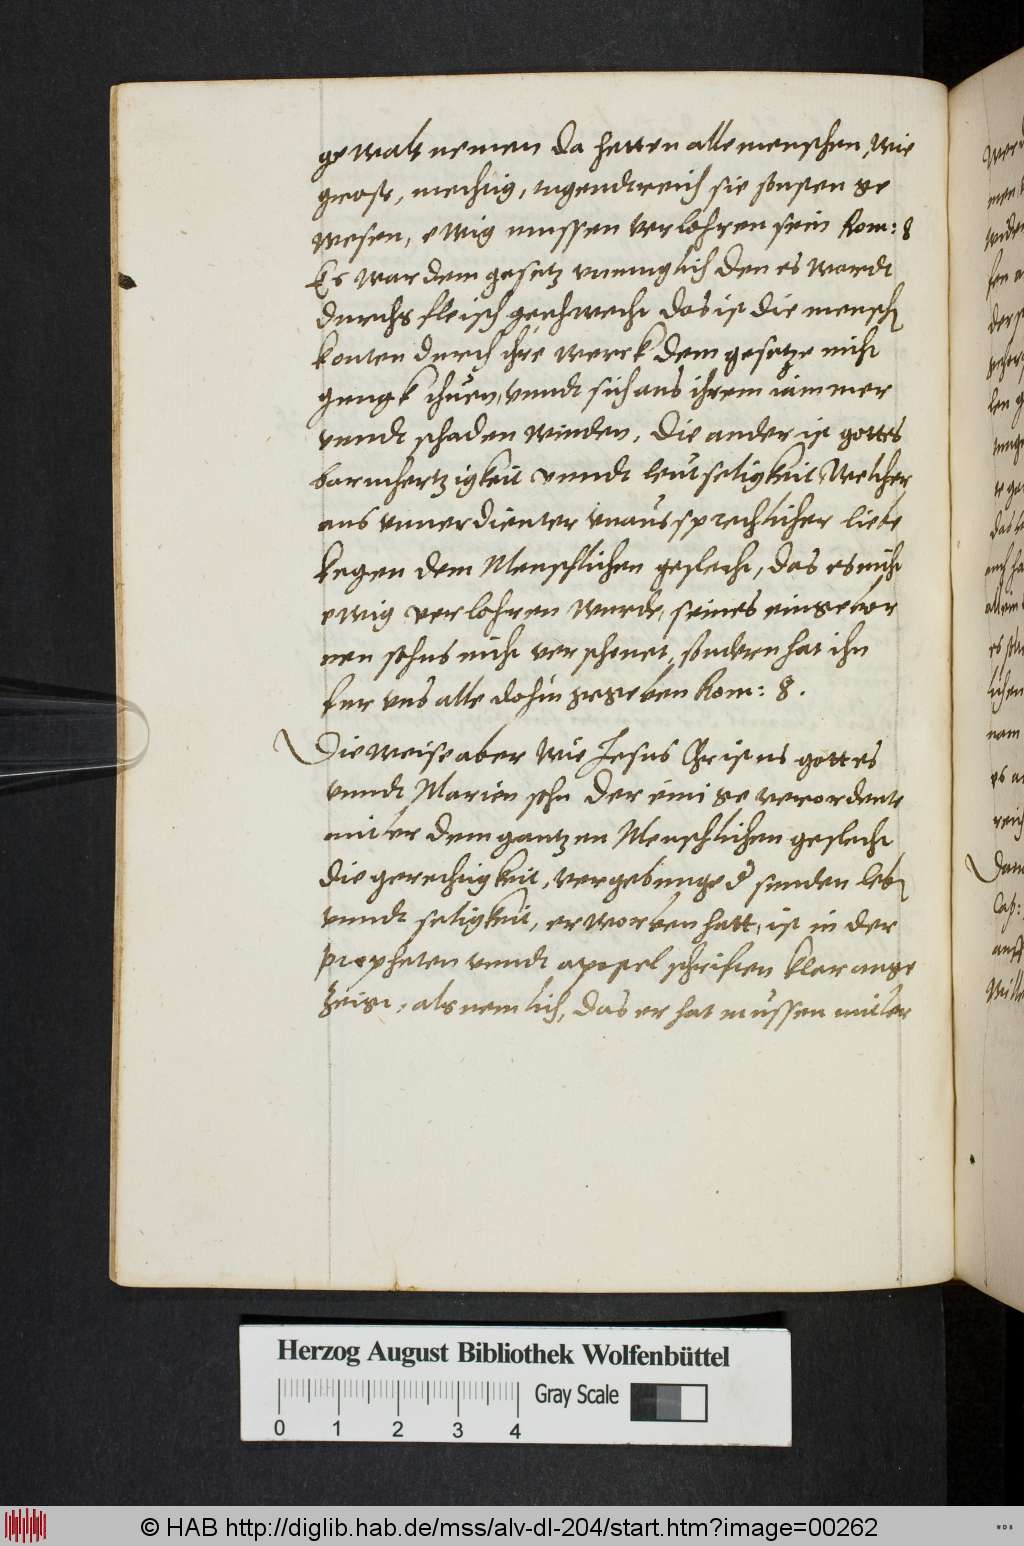 gewalt nemen da hetten alle menschen, wie
gross, mechtig, tugendtreich sie sonsten ge
wesen, ewig mussen verlohren sein Rom: 8
Es war dem gesetz vnmuglich den es wardt
durchs fleisch geschwecht das ist die mensch
konten durch ihre werck dem gesetze nicht
gnugk thuen, vnndt sich aus ihrem iammer
vnndt schaden winden, Die ander ist gottes
barmhertzigkeit vnndt leutseligkeit, Welcher
aus vnuerdienter vnaussprechlicher liebe
kegen dem Menschlichen geslecht, das es nicht
ewig verlohren wurde, seines eingebor
nen sohns nicht verschonet, sondern hat ihn
fur vns alle dohin gegeben Rom: 8.
Die weise aber wie Jesus Christus gottes
vnndt Marien sohn der einige verordente
mitler dem gantzen Menschlichen geslecht
die gerechtigkeit, vergebunge d sunden leb
vnndt seligkeit, erworben hatt, ist in der
propheten vnndt apostel schriften klar ange
zeigt, als nemlich, das er hat mussen mitler
Herzog August Bibliothek Wolfenbüttel
Gray Scale
0 1 2 3 4
© HAB http://diglib.hab.de/mss/alv-dl-204/start.htm?image=00262